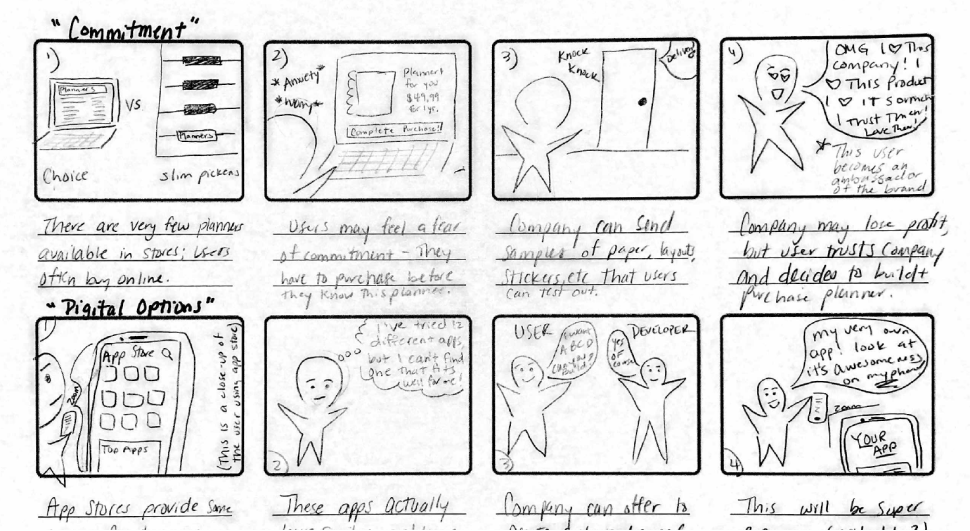 "Commitment"
1)
Planners
VS.
Planners
Choice
slim pickens
There are very few planners
available in stores; users
often buy online.
2)
*Anxiety*
*Worry*
Planner
for you
$49.99
for 1 yr.
Complete Purchase!
Users may feel a fear
of commitment - They
have to purchase before
They know this planner.
3)
Knock
Knock
Delivery
Company can send
samples of paper, layouts,
stickers, etc that users
can test out.
4)
OMG I ♡ This
company! I
♡ This Product
I ♡ it so much
I trust Them!
Love Them!
* This user
becomes an
ambassador
of the brand
Company may lose profit,
but user trusts company
and decides to build +
purchase planner.
"Digital Options"
1)
App Store
Top Apps
zoom
(This is a close-up of
the user using app store)
App Stores provide some
2
I've tried 12
different apps,
but I can't find
one that fits
well for me!
These apps actually
3
USER
I want
A B C D
DEVELOPER
Yes
of course
Company can offer to
4
my very own
app! look at
it's awesomeness
on my phone
zoom
YOUR
APP
This will be super